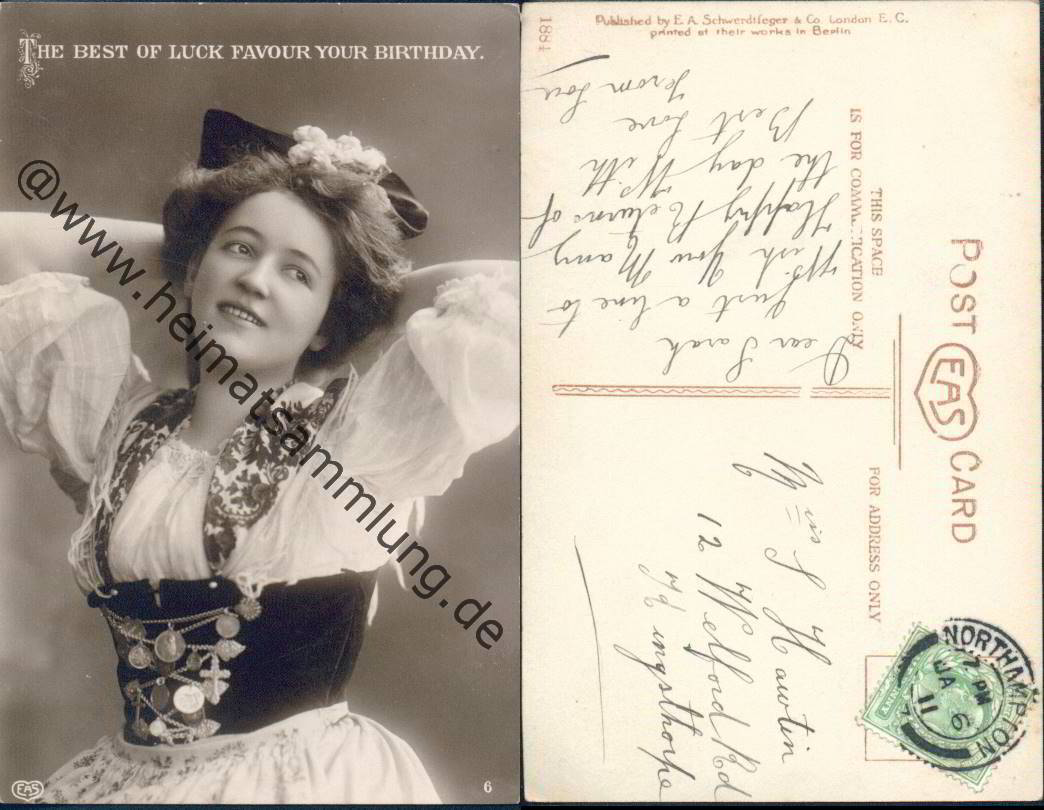 THE BEST OF LUCK FAVOUR YOUR BIRTHDAY.
@www.heimatsammlung.de
EAS
6
1884
Published by E. A. Schwerdtfeger & Co. London E. C.
printed at their works in Berlin
POST EAS CARD
THIS SPACE
IS FOR COMMUNICATION ONLY
FOR ADDRESS ONLY
Dear Sarah
Just a line to
Wish You Many
Happy Returns of
the day With
Best Love
From Lou
Miss S. Hawtin
12 Welford Rd
Kingsthorpe
NORTHAMPTON
7 PM
JA 6
11